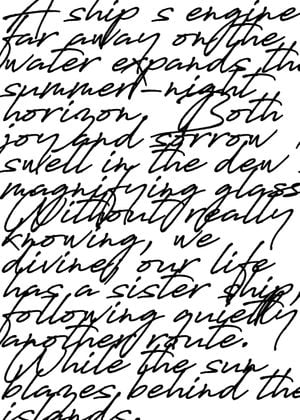 A ship s engine
far away on the
water expands the
summer-night
horizon. Both
joy and sorrow
swell in the dew s
magnifying glass.
Without really
knowing, we
divine; our life
has a sister ship,
following quietly
another route.
While the sun
blazes behind the
islands.